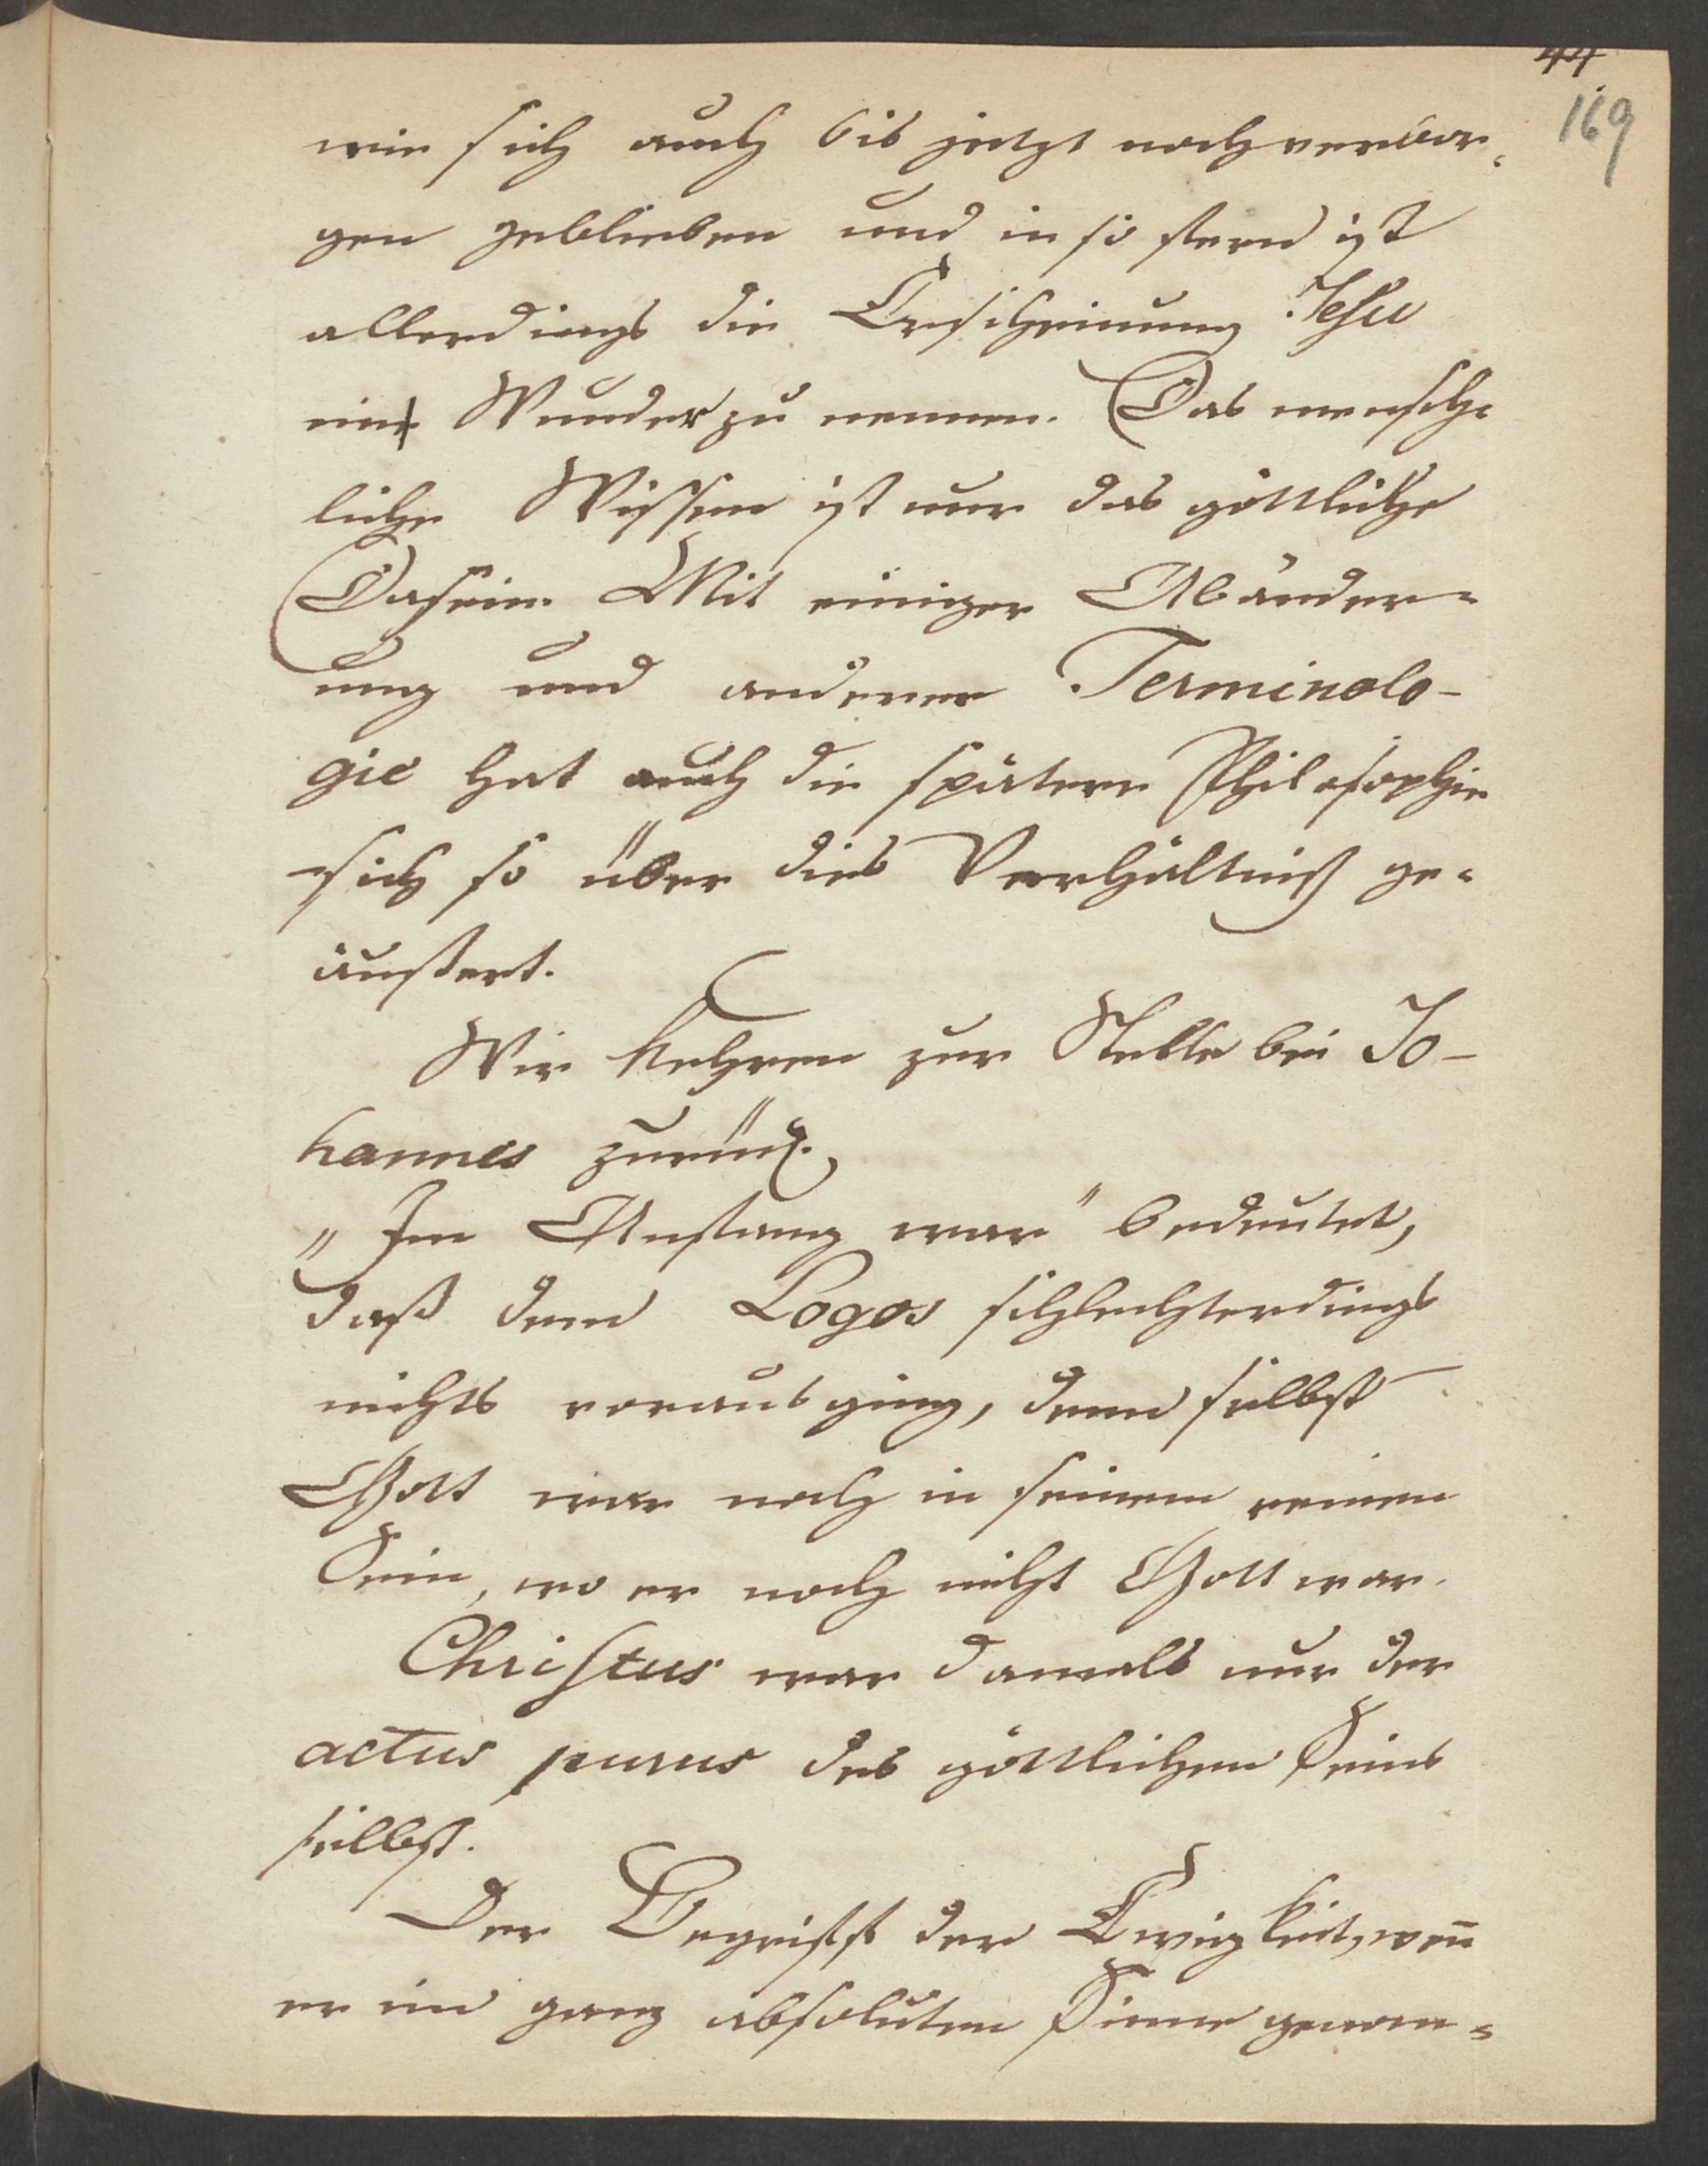 44
169
wie sich auch bis jetzt noch verbor-
gen geblieben und in so fern ist
allerdings die Erscheinung Jesu
ein Wunder zu nennen. Das mensch-
liche Wissen ist nur das göttliche
Dasein. Mit einiger Abänder-
ung und anderer Terminolo-
gie hat auch die spätere Philosophie
sich so über dies Verhältniß ge-
äußert.
Wir kehren zur Stelle bei Jo-
hannes zurück.
„Im Anfang war" bedeutet,
daß dem Logos schlechterdings
nichts vorausging, denn selbst
Gott war noch in seinem reinen
Sein, wo er noch nicht Gott war.
Christus war damals nur der
actus purus des göttlichen Seins
selbst.
Der Begriff der Ewigkeit, weñ
er im ganz absoluten Sinne genom-